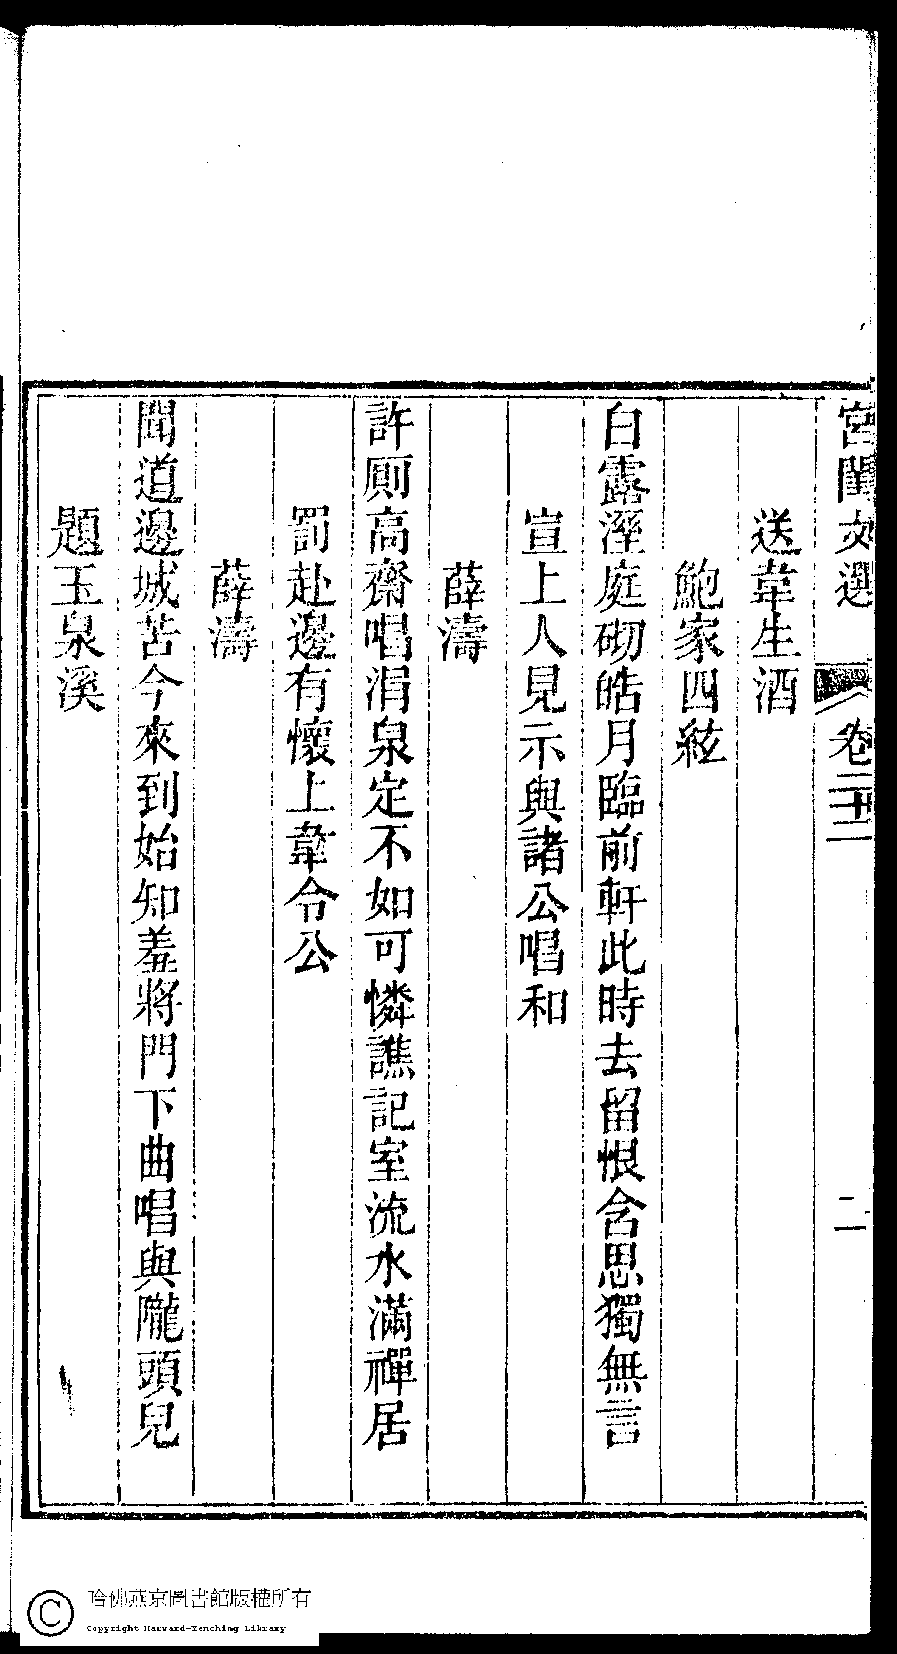 宮閨文選 卷二十二 二
送韋生酒
鮑家四絃
白露溼庭砌皓月臨前軒此時去留恨含思獨無言
宣上人見示與諸公唱和
薛濤
許厠高齋唱涓泉定不如可憐譙記室流水滿禪居
罰赴邊有懷上韋令公
薛濤
聞道邊城苦今來到始知羞將門下曲唱與隴頭兒
題玉泉溪
哈佛燕京圖書館版權所有
Copyright Harvard-Yenching Library